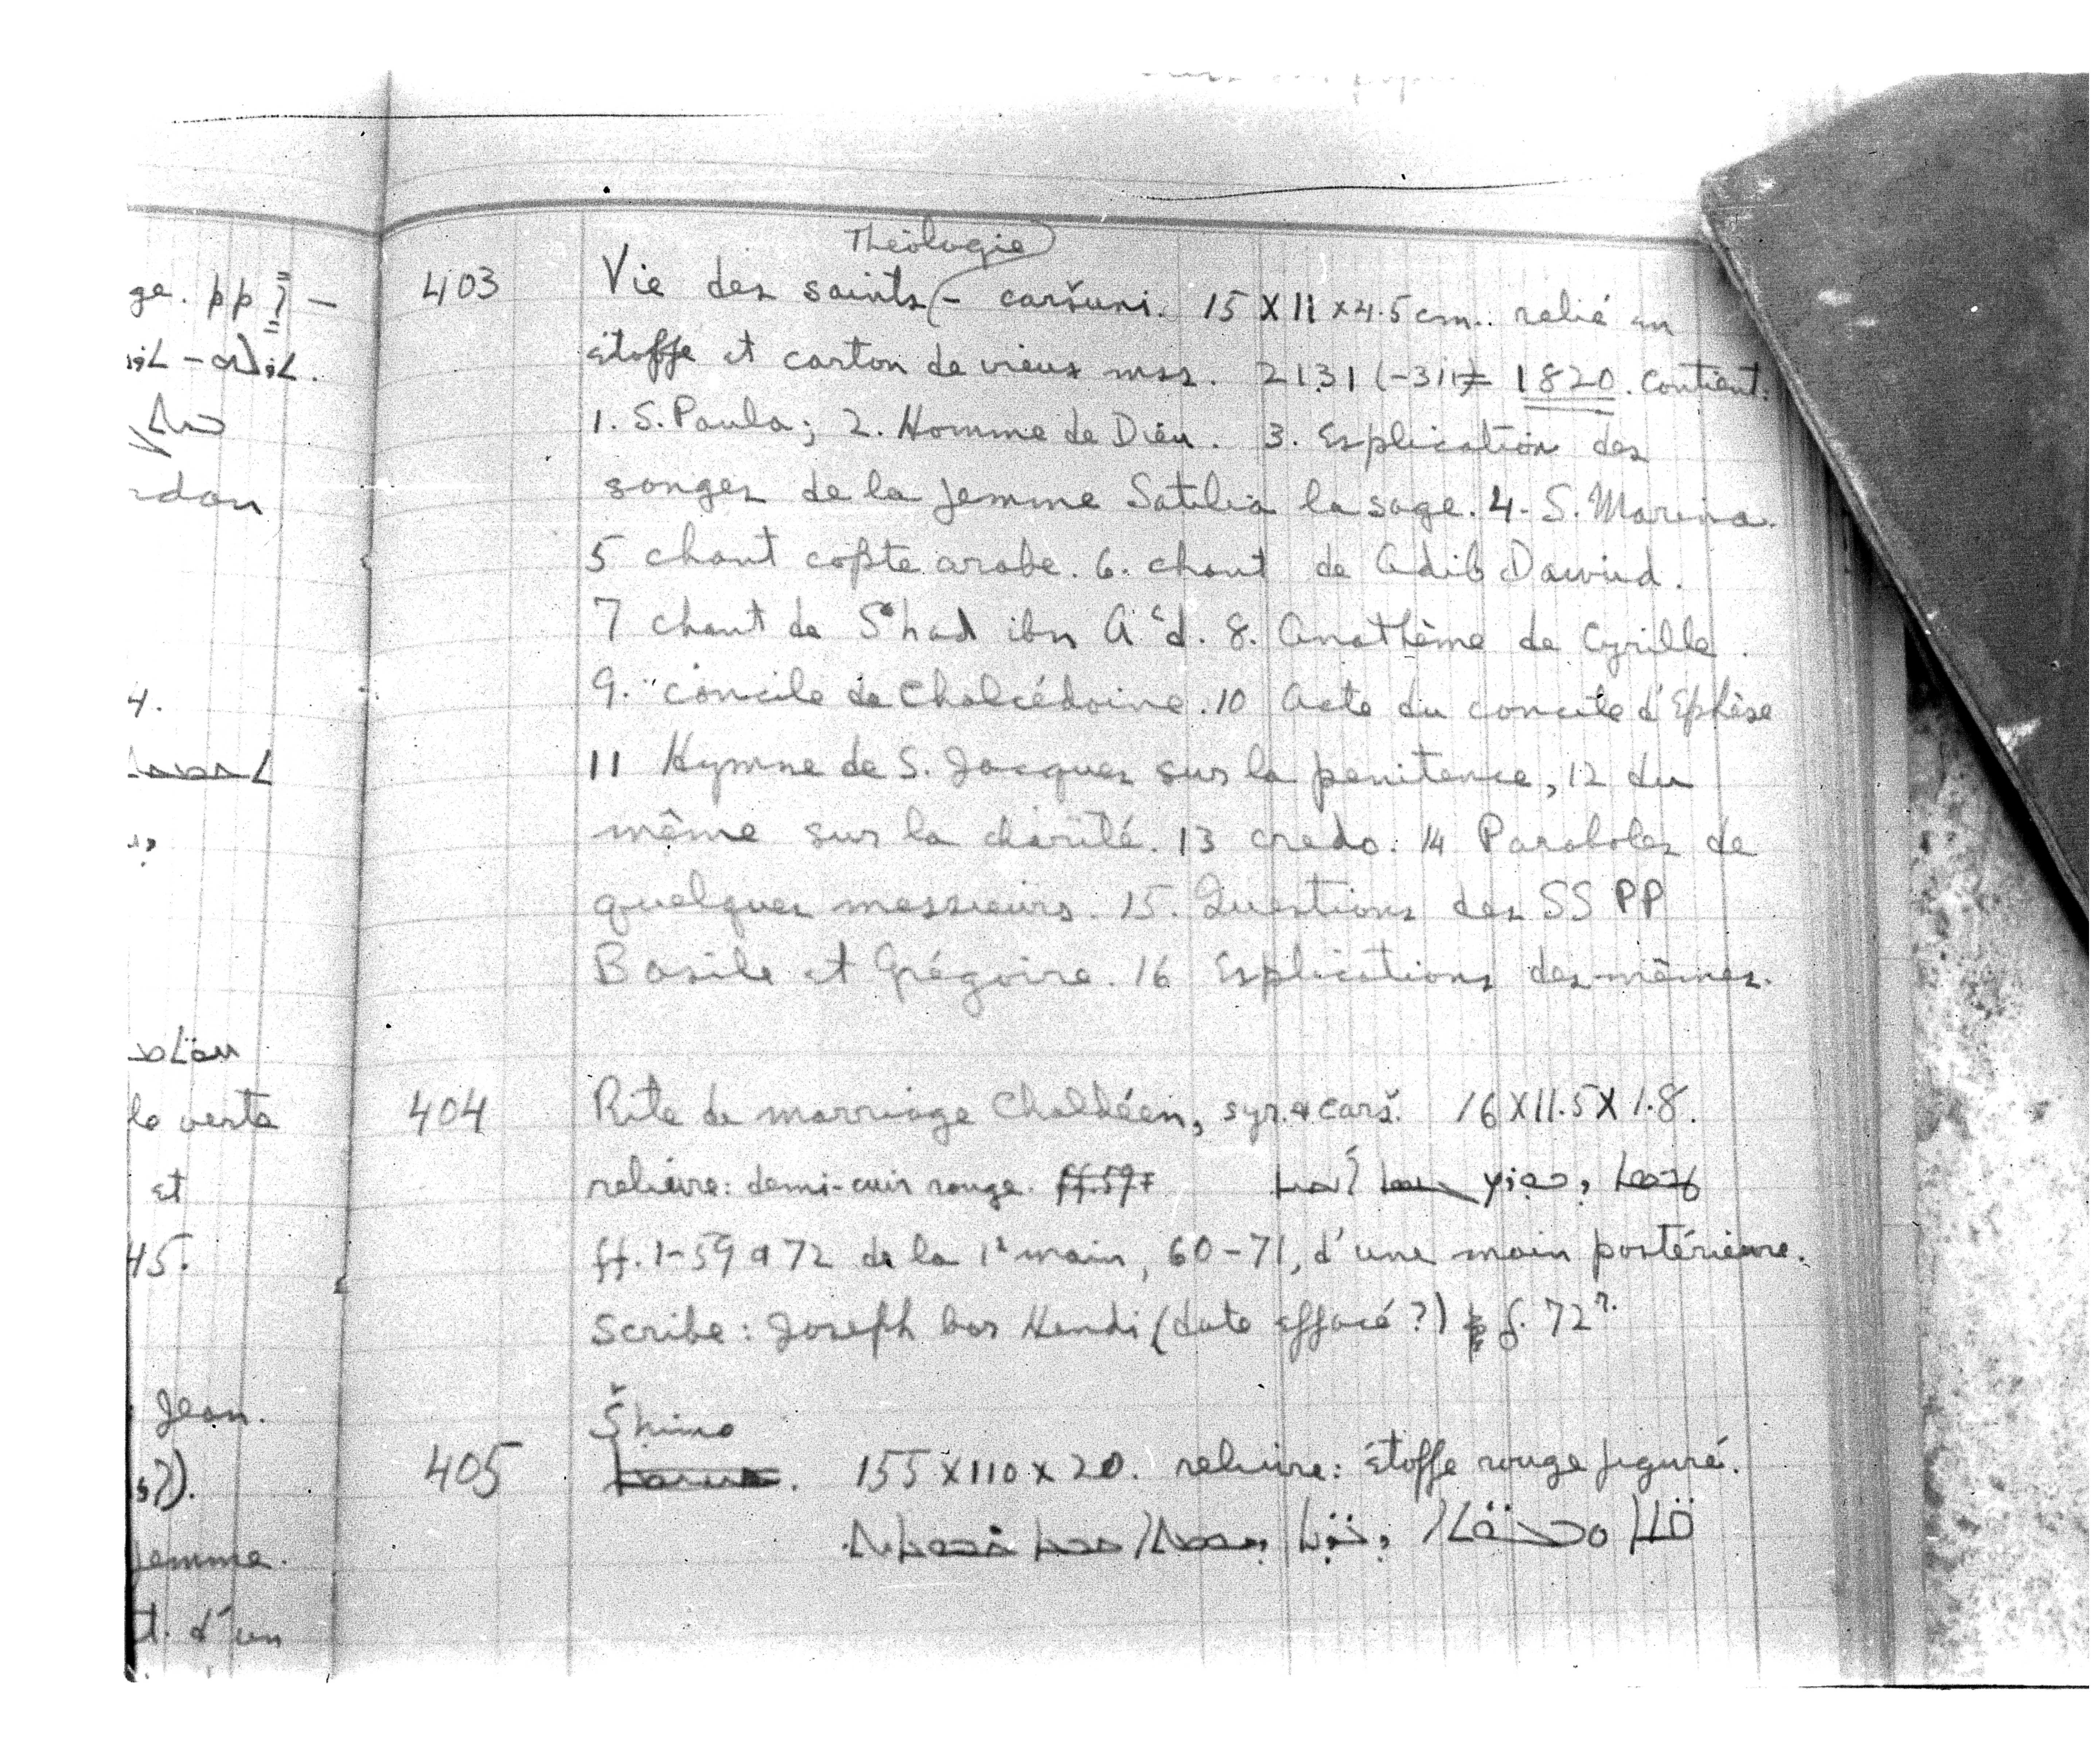 ge. pp ? —
rdan
4.
la verte
et
45.
Jean.
s?).
femme.
t. d'un
Théologie
403 Vie des saints - caršuni. 15 X 11 x 4.5 cm.. relié en
étoffe et carton de vieux mss. 2131 (-311)= 1820. contient.
1. S. Paula; 2. Homme de Dieu. 3. Explication des
songes de la femme Satilia la sage. 4. S. Marina.
5 chant copte arabe. 6. chant de Adib Dawud.
7 chant de ibn 8. Anathème de Cyrille.
9. concile de Chalcédoine. 10 Acte du concile d'Ephèse
11 Hymne de S. Jacques sur la penitence, 12 du
même sur la charité. 13 credo. 14 Paraboles de
quelques messieurs. 15. Questions des SS PP
Basile et Grégoire. 16 Explications des mêmes.
404 Rite de marriage Chaldéen, syr. & carš. 16 X 11.5 X 1.8.
reliure: demi-cuir rouge. ff. 59+
ff. 1-59 & 72 de la 1e main, 60-71, d'une main postérieure.
Scribe: Joseph bar Hendi (date effacé?) f. 72r.
Šhimo
405 155 x 110 x 20. reliure: étoffe rouge figuré.